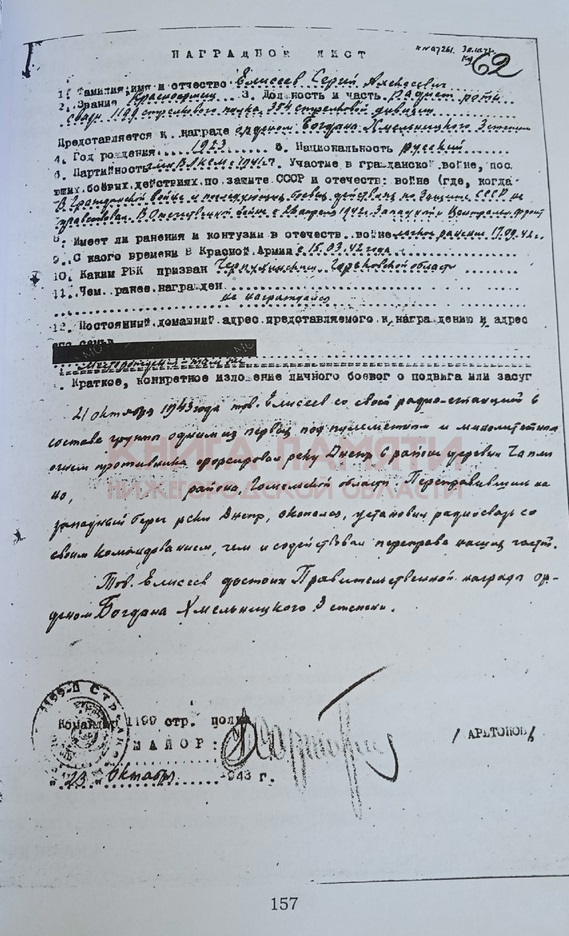 НАГРАДНОЙ ЛИСТ
62
1. Фамилия, имя и отчество Елисеев Сергей Алексеевич
2. Звание Красноармеец 3. Должность и часть Радист роты
связи 1199 стрелкового полка, 354 стрелковой дивизии
Представляется к награде орденом Богдана Хмельницкого 3 степени
4. Год рождения 1923 5. Национальность русский
6. Партийность член ВЛКСМ с 1941г. Участие в гражданской войне, пос
ющих боевых действиях по защите СССР и отечеств. войне (где, когда
В Гражданской войне и последующих боевых действиях по защите СССР не
участвовал. В Отечественной войне с 28 апреля 1942г. Западный и Центральн. фронт
8. Имеет ли ранения и контузии в отечеств. войне легкое ранение 17.09.42г.
9. С каого времени в Красной Армии с 15.03.42 года
10. Каким РВК призван Горьковской области
11. Чем ранее награжден
не награждался
12. Постоянный домашний адрес представляемого к награждению и адрес
его семьи
Краткое, конкретное изложение личного боевого подвига или заслуг
21 октября 1943 года тов. Елисеев со своей радиостанцией в
составе группы одним из первых под пулеметным и минометным
огнем противника форсировал реку Днепр в районе деревни
района, Гомельской области. Переправившись на
западный берег реки Днепр, окопался, установил радиосвязь со
своим командованием, чем и содействовал переправе наших частей.
Тов. Елисеев достоин Правительственной награды ор-
деном Богдана Хмельницкого 3 степени.
КНИГА ПАМЯТИ
НИЖЕГОРОДСКОЙ ОБЛАСТИ
Командир 1199 стр. полка
МАЙОР:
/АРЬТЮХОВ/
23 Октября 1943 г.
157